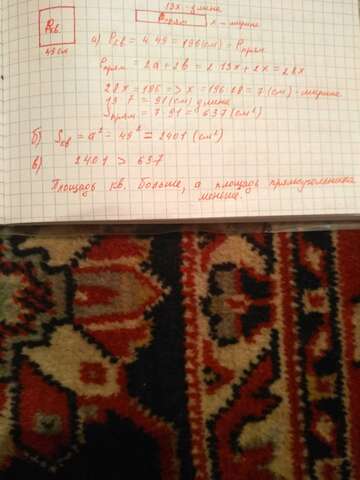 13x - длина
Pкв.
Pпрям
x - ширина
49 см
а) Pкв = 4·49 = 196(см) = Pпрям
Pпрям = 2a + 2b = 2·13x + 2x = 28x
28x = 196 => x = 196:28 = 7 (см) - ширина
13·7 = 91 (см) длина
Sпрям = 7·91 = 637 (см²)
б) Sкв = a² = 49² = 2401 (см²)
в) 2401 > 637
Площадь кв. больше, а площадь прямоугольника
меньше.